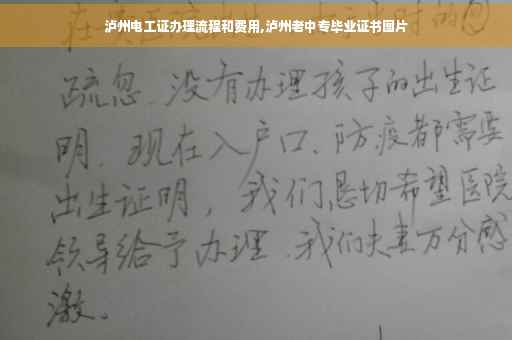 泸州电工证办理流程和费用,泸州老中专毕业证书图片
疏忽、没有办理孩子的出生证
明、现在入户口、防疫都需要
出生证明，我们恳切希望医院
领导给予办理、我们夫妻万分感
激。